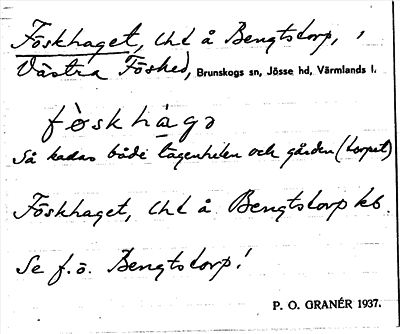 Föskhaget, lht å Bengtstorp,
Västra Fösked, Brunskogs sn, Jösse hd, Värmlands l.
fö̀skhàgə
Så kallas både lägenheten och gården (torpet)
Föskhaget, lht å Bengtstorp kb.
Se f.ö. Bengtstorp!
P. O. GRANÉR 1937.